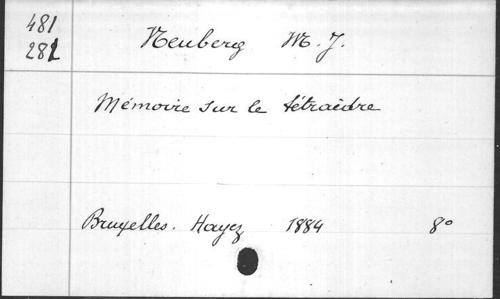 481
282
Neuberg M. J.
Mémoire sur le tétraèdre
Bruxelles. Hayez 1884 8°